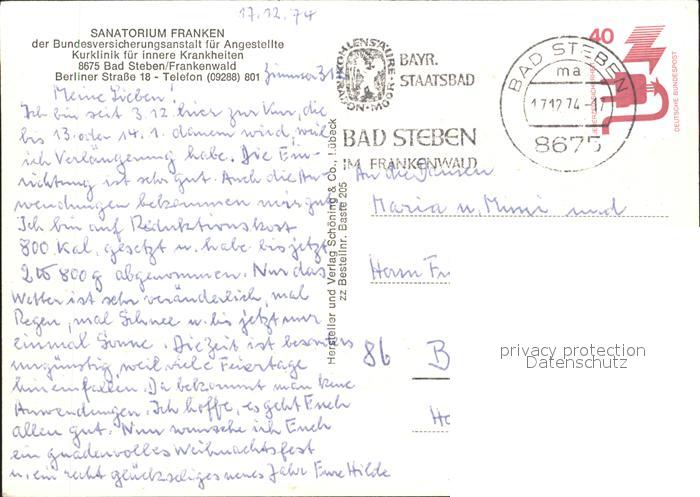 17.12.74
SANATORIUM FRANKEN
der Bundesversicherungsanstalt für Angestellte
Kurklinik für innere Krankheiten
8675 Bad Steben/Frankenwald
Berliner Straße 18 - Telefon (09288) 801
Zimmer
Meine Lieben!
Ich bin seit 3.12. hier zur Kur, die
bis 13. oder 14.1. dauern wird, weil
ich Verlängerung habe. Die Ein-
richtung ist sehr gut. Auch die An-
wendungen bekommen mir gut.
Ich bin auf Reduktionskost
800 Kal. gesetzt u. habe bis jetzt
2 800 g abgenommen. Nur das
Wetter ist sehr veränderlich, mal
Regen, mal Schnee u. bis jetzt nur
einmal Sonne. Die Zeit ist besonders
ungünstig, weil viele Feiertage
hineinfallen. Da bekommt man keine
Anwendungen. Ich hoffe, es geht Euch
allen gut. Nun wünsche ich Euch
ein gnadenvolles Weihnachtsfest
u. ein recht glückseliges neues Jahr Eure Hilde
Hersteller und Verlag Schöning & Co., Lübeck
zz Bestellnr. Baste 205
KOHLENSÄURE
RADON
MOOR
BAYR.
STAATSBAD
BAD STEBEN
IM FRANKENWALD
BAD STEBEN
ma
17.12.74-17
8675
40
DEUTSCHE BUNDESPOST
An die
Maria u. Mimi und
Herrn
86 B
privacy protection
Datenschutz